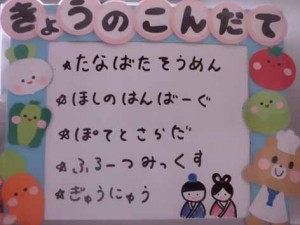 きょうのこんだて
☆たなばたそうめん
☆ほしのはんばーぐ
☆ぽてとさらだ
☆ふるーつみっくす
☆ぎゅうにゅう